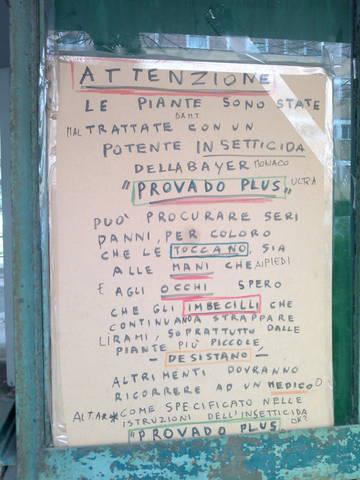 ATTENZIONE
LE PIANTE SONO STATE
MAL TRATTATE CON UN
POTENTE INSETTICIDA
DELLA BAYER MONACO
"PROVADO PLUS" ULTRA
PUO' PROCURARE SERI
DANNI, PER COLORO
CHE LE TOCCANO, SIA
ALLE MANI CHE AI PIEDI
E AGLI OCCHI SPERO
CHE GLI IMBECILLI CHE
CONTINUANO A STRAPPARE
I RAMI, SOPRATTUTTO DALLE
PIANTE PIÙ PICCOLE
- DESISTANO -
ALTRIMENTI DOVRANNO
RICORRERE AD UN MEDICO
COME SPECIFICATO NELLE
ISTRUZIONI DELL'INSETTICIDA
"PROVADO PLUS